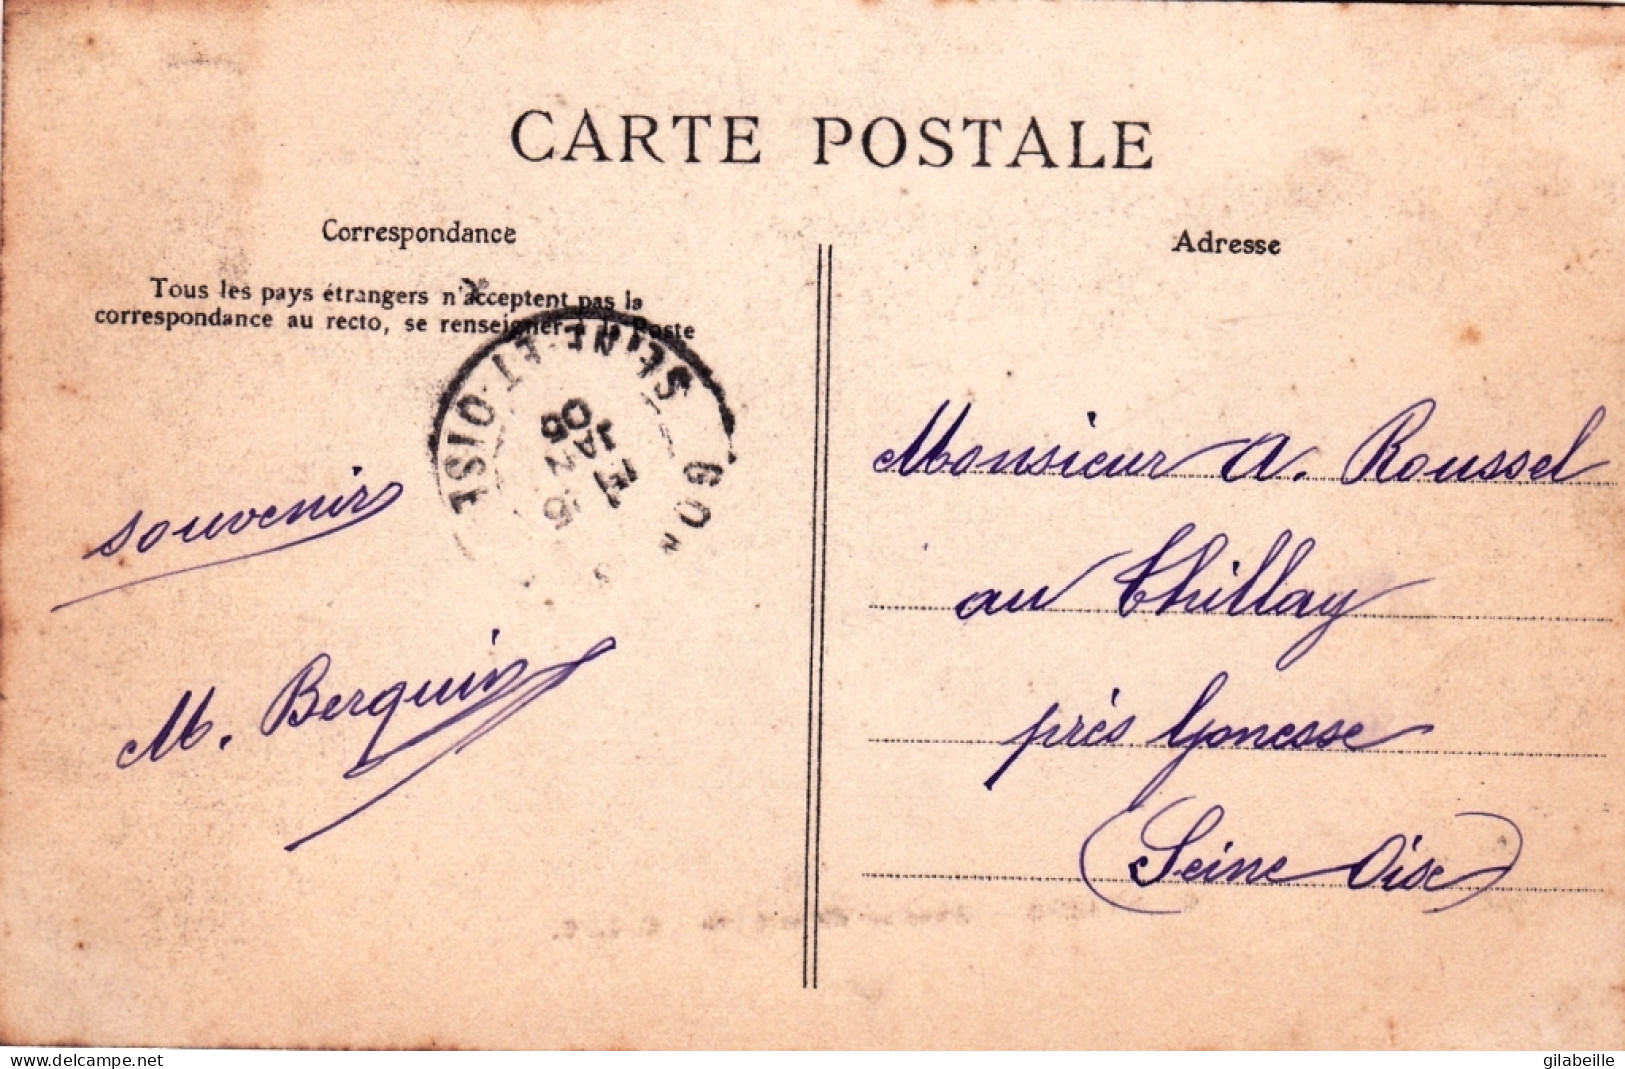 CARTE POSTALE
Correspondance
Tous les pays étrangers n'acceptent pas la
correspondance au recto, se renseigner à la Poste
SEINE-ET-OISE
JANV
souvenir
M. Berquin
Adresse
Monsieur A. Roussel
au Thillay
près Gonesse
(Seine Oise)
delcampe.net
gilabeille